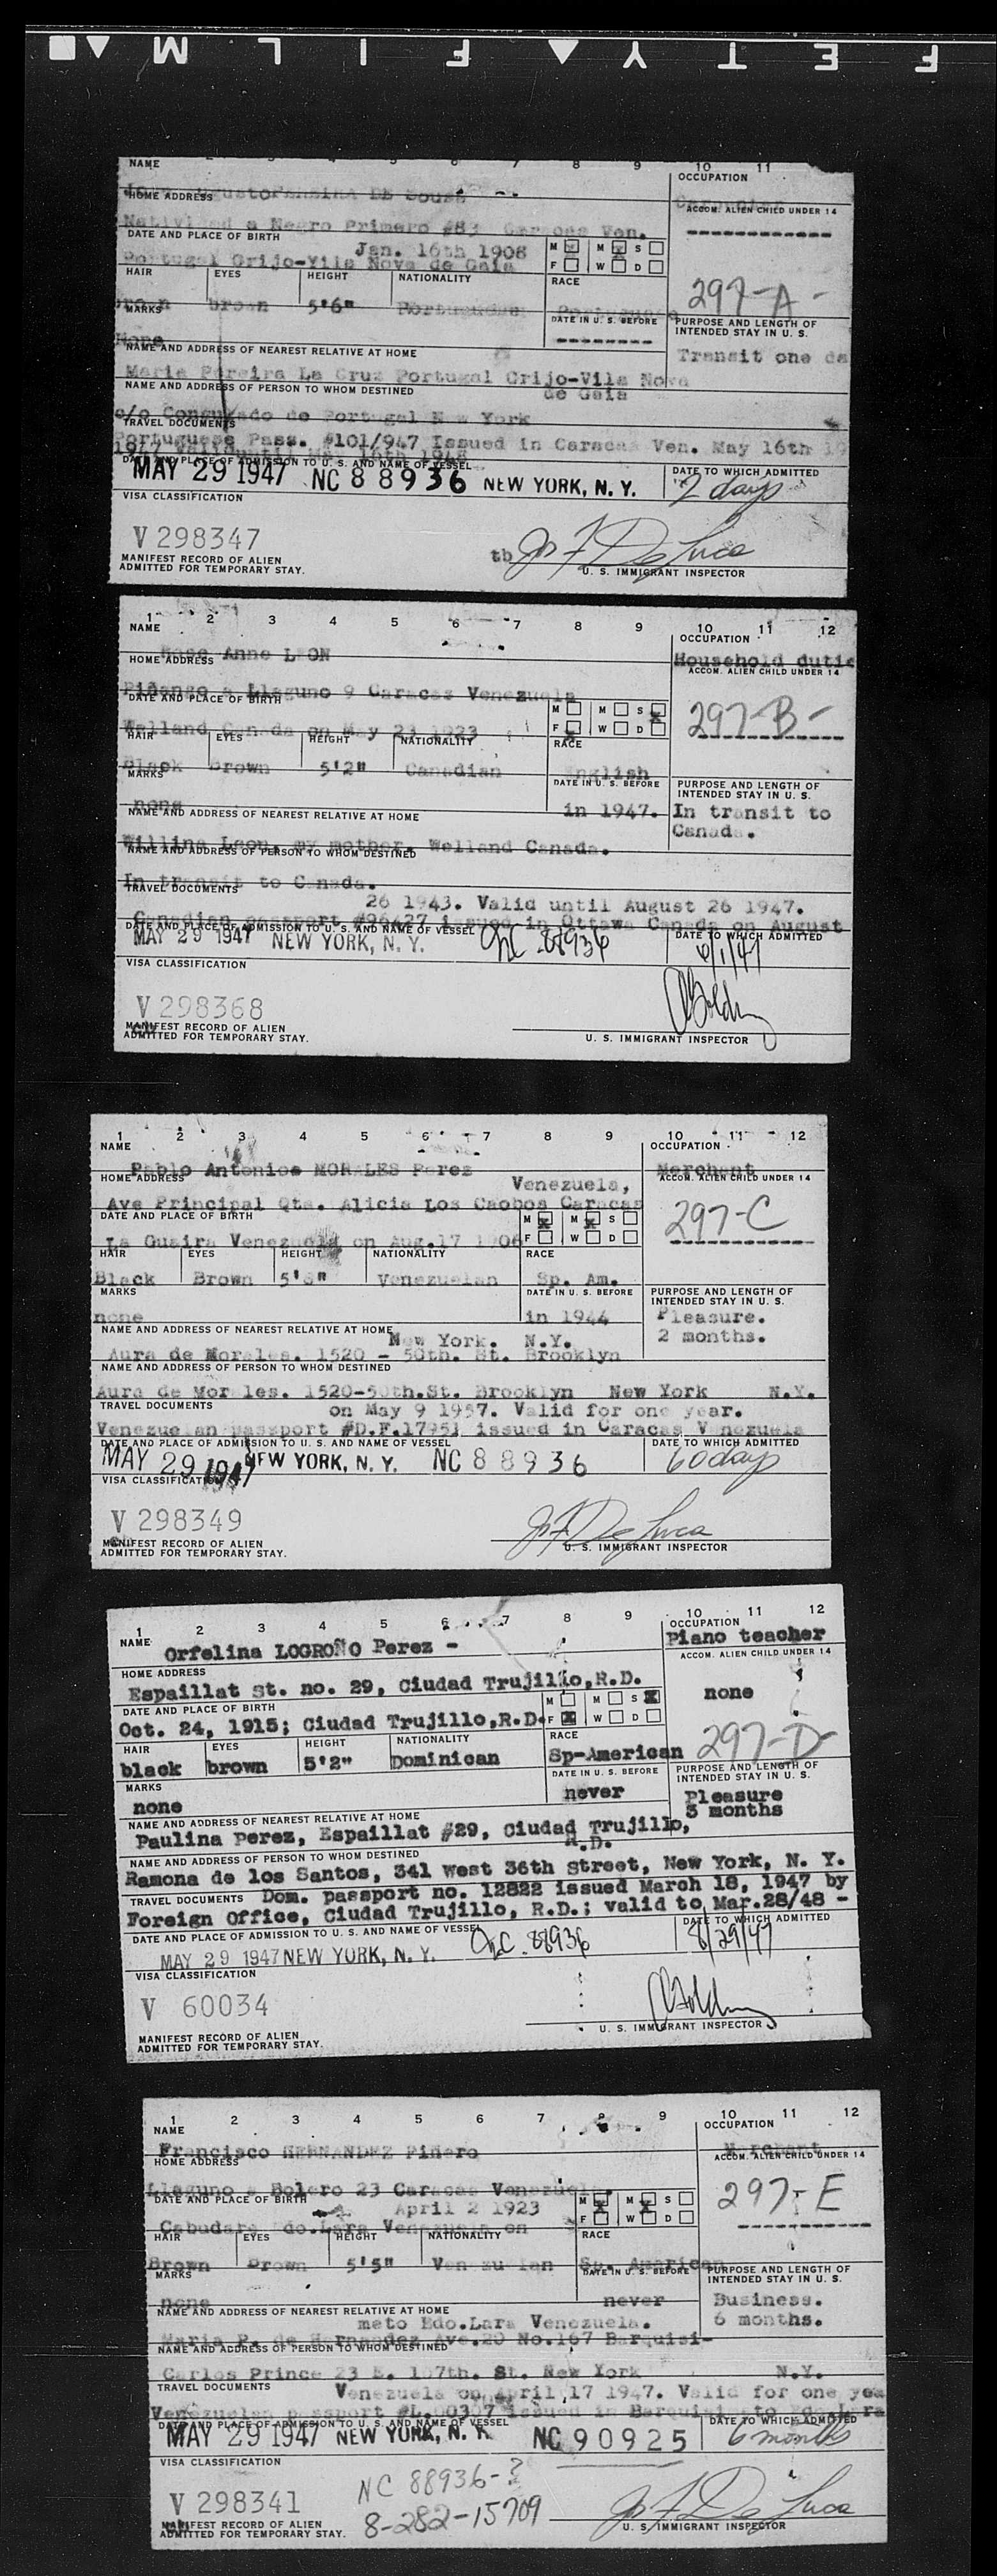 F E T Y F I L M
NAME 2 3 4 5 6 7 8 9 10 11
OCCUPATION
DE Souza - -
HOME ADDRESS
ACCOM. ALIEN CHILD UNDER 14
a Negro Primero #83 Caracas Ven.
DATE AND PLACE OF BIRTH
Jan. 16th 1908
M M S
Portugal Grijo-Vila Nova de Gaia
F W D
HAIR EYES HEIGHT NATIONALITY RACE
297-A-
brown brown 5'6" Portuguese Portuguese
MARKS
DATE IN U. S. BEFORE
PURPOSE AND LENGTH OF
INTENDED STAY IN U. S.
None
NAME AND ADDRESS OF NEAREST RELATIVE AT HOME
Transit one da
Maria Pereira La Cruz Portugal Grijo-Vila Nova
NAME AND ADDRESS OF PERSON TO WHOM DESTINED
de Gaia
c/o Consulado de Portugal New York
TRAVEL DOCUMENTS
Portuguese Pass. #101/947 Issued in Caracas Ven. May 16th 19
DATE AND PLACE OF ADMISSION TO U. S. AND NAME OF VESSEL
DATE TO WHICH ADMITTED
MAY 29 1947 NC 88936 NEW YORK, N. Y.
2 days
VISA CLASSIFICATION
V 298347
tb Jos F De Luca
MANIFEST RECORD OF ALIEN
ADMITTED FOR TEMPORARY STAY.
U. S. IMMIGRANT INSPECTOR
1 2 3 4 5 6 7 8 9 10 11 12
NAME
OCCUPATION
Rose Anne LEON
Household dutie
HOME ADDRESS
ACCOM. ALIEN CHILD UNDER 14
a Llaguno 9 Caracas Venezuela
DATE AND PLACE OF BIRTH
M M S X
297-B-
Welland Canada on May 23 1923
F X W D
HAIR EYES HEIGHT NATIONALITY RACE
Black Brown 5'2" Canadian English
MARKS
DATE IN U. S. BEFORE
PURPOSE AND LENGTH OF
INTENDED STAY IN U. S.
none
in 1947.
In transit to
NAME AND ADDRESS OF NEAREST RELATIVE AT HOME
Canada.
Leon, my mother. Welland Canada.
NAME AND ADDRESS OF PERSON TO WHOM DESTINED
In transit to Canada.
TRAVEL DOCUMENTS
26 1943. Valid until August 26 1947.
Canadian passport #96427 issued in Ottawa Canada on August
DATE AND PLACE OF ADMISSION TO U. S. AND NAME OF VESSEL
DATE TO WHICH ADMITTED
MAY 29 1947 NEW YORK, N. Y. NC 88936
6/1/47
VISA CLASSIFICATION
V 298368
MANIFEST RECORD OF ALIEN
ADMITTED FOR TEMPORARY STAY.
U. S. IMMIGRANT INSPECTOR
1 2 3 4 5 6 7 8 9 10 11 12
NAME
OCCUPATION
Pablo Antonioe MORALES Perez
Merchant
HOME ADDRESS
Venezuela,
ACCOM. ALIEN CHILD UNDER 14
Ave Principal Qta. Alicia Los Caobos Caracas
DATE AND PLACE OF BIRTH
M X M X S
297-C
La Guaira Venezuela on Aug.17 1906
F W D
HAIR EYES HEIGHT NATIONALITY RACE
Black Brown Venezuelan Sp. Am.
MARKS
DATE IN U. S. BEFORE
PURPOSE AND LENGTH OF
INTENDED STAY IN U. S.
none
in 1944
Pleasure.
2 months.
NAME AND ADDRESS OF NEAREST RELATIVE AT HOME
New York. N.Y.
Aura de Morales. 1520 - 50th. St. Brooklyn
NAME AND ADDRESS OF PERSON TO WHOM DESTINED
Aura de Morales. 1520-50th.St. Brooklyn New York N.Y.
TRAVEL DOCUMENTS
on May 9 1957. Valid for one year.
Venezuelan passport #D.F.17951 issued in Caracas Venezuela
DATE AND PLACE OF ADMISSION TO U. S. AND NAME OF VESSEL
DATE TO WHICH ADMITTED
MAY 29 1947 NEW YORK, N. Y. NC 88936
60 days
VISA CLASSIFICATION
V 298349
Jos F De Luca
MANIFEST RECORD OF ALIEN
ADMITTED FOR TEMPORARY STAY.
U. S. IMMIGRANT INSPECTOR
1 2 3 4 5 6 7 8 9 10 11 12
NAME
OCCUPATION
Orfelina LOGROÑO Perez -
Piano teacher
HOME ADDRESS
ACCOM. ALIEN CHILD UNDER 14
Espaillat St. no. 29, Ciudad Trujillo,R.D.
none
DATE AND PLACE OF BIRTH
M M S X
Oct. 24, 1915; Ciudad Trujillo,R.D.
F X W D
297-D-
HAIR EYES HEIGHT NATIONALITY RACE
black brown 5'2" Dominican Sp-American
MARKS
DATE IN U. S. BEFORE
PURPOSE AND LENGTH OF
INTENDED STAY IN U. S.
none
never
Pleasure
3 months
NAME AND ADDRESS OF NEAREST RELATIVE AT HOME
Paulina Perez, Espaillat #29, Ciudad Trujillo,
R.D.
NAME AND ADDRESS OF PERSON TO WHOM DESTINED
Ramona de los Santos, 341 West 36th Street, New York, N. Y.
TRAVEL DOCUMENTS Dom. passport no. 12822 issued March 18, 1947 by
Foreign Office, Ciudad Trujillo, R.D.; valid to Mar.28/48 -
DATE AND PLACE OF ADMISSION TO U. S. AND NAME OF VESSEL
DATE TO WHICH ADMITTED
MAY 29 1947 NEW YORK, N. Y. NC. 88936
8/29/47
VISA CLASSIFICATION
V 60034
MANIFEST RECORD OF ALIEN
ADMITTED FOR TEMPORARY STAY.
U. S. IMMIGRANT INSPECTOR
1 2 3 4 5 6 7 8 9 10 11 12
NAME
OCCUPATION
Francisco HERNANDEZ Piñero
Merchant
HOME ADDRESS
ACCOM. ALIEN CHILD UNDER 14
Llaguno a Bolero 23 Caracas Venezuela
DATE AND PLACE OF BIRTH
April 2 1923
M X M X S
297-E
Cabudare Edo.Lara Venezuela on
F W D
HAIR EYES HEIGHT NATIONALITY RACE
Brown Brown 5'5" Venezuelan Sp. American
MARKS
DATE IN U. S. BEFORE
PURPOSE AND LENGTH OF
INTENDED STAY IN U. S.
none
never
Business.
6 months.
NAME AND ADDRESS OF NEAREST RELATIVE AT HOME
meto Edo.Lara Venezuela.
Maria P. de Hernandez Ave.20 No.167 Barquisi-
NAME AND ADDRESS OF PERSON TO WHOM DESTINED
Carlos Prince 23 E. 107th. St. New York N.Y.
TRAVEL DOCUMENTS
Venezuela on April 17 1947. Valid for one yea
Venezuelan passport issued in
DATE AND PLACE OF ADMISSION TO U. S. AND NAME OF VESSEL
DATE TO WHICH ADMITTED
MAY 29 1947 NEW YORK, N. Y. NC 90925
6 months
VISA CLASSIFICATION
NC 88936-?
V 298341
8-282-15709
Jos F De Luca
MANIFEST RECORD OF ALIEN
ADMITTED FOR TEMPORARY STAY.
U. S. IMMIGRANT INSPECTOR